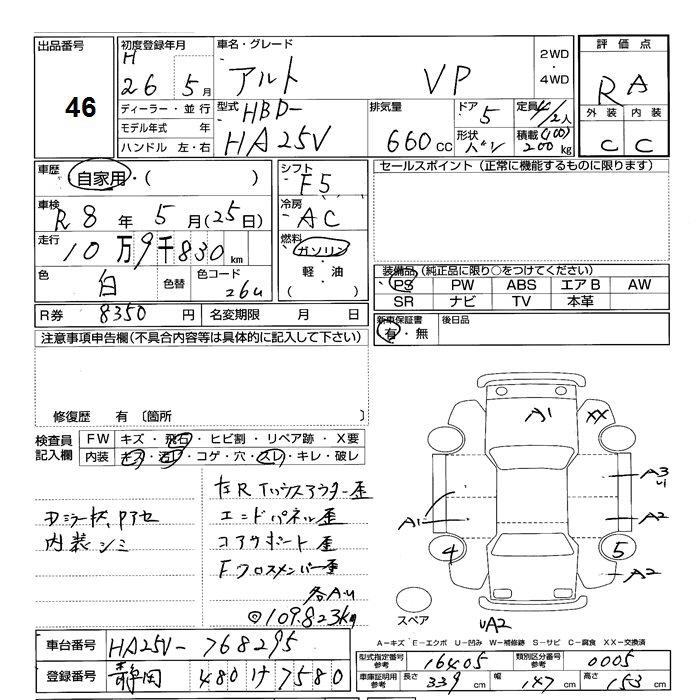 出品番号 46
初度登録年月 H 26年 5月
車名・グレード アルト VP
2WD・4WD
評価点 RA
外装 C 内装 C
ディーラー・並行
モデル年式 年
ハンドル 左・右
型式 HBD-HA25V
排気量 660cc
ドア 5
形状 バン
定員 4/2人
積載 (100) 200kg
車歴 自家用・( )
シフト F5
セールスポイント(正常に機能するものに限ります)
車検 R8年 5月(25日)
冷房 AC
走行 10万9千830km
燃料 ガソリン
軽・油
( )
色 白 色替 色コード 26U
装備品(純正品に限り○をつけてください)
PS PW ABS エアB AW
SR ナビ TV 本革
R券 8350円 名変期限 月 日
新車保証書 有・無 後日品
注意事項申告欄(不具合内容等は具体的に記入して下さい)
修復歴 有〔箇所
検査員記入欄
FW キズ・飛石・ヒビ割・リペア跡・X要
内装 キズ・汚レ・コゲ・穴・スレ・キレ・破レ
内装シミ
エンドパネル歪
コアサポート歪
Fクロスメンバー歪
各AU
◎109.823kg
A1 XX
A3
U
A1 A2
4 5
A2
スペア
UA2
A−キズ E−エクボ U−凹み W−補修跡 S−サビ C−腐食 XX−交換済
車台番号 HA25V-768295
登録番号 静岡 480 け 7580
型式指定番号 参考 16405 類別区分番号 参考 0005
車庫証明用 参考 長さ 339cm 幅 147cm 高さ 153cm